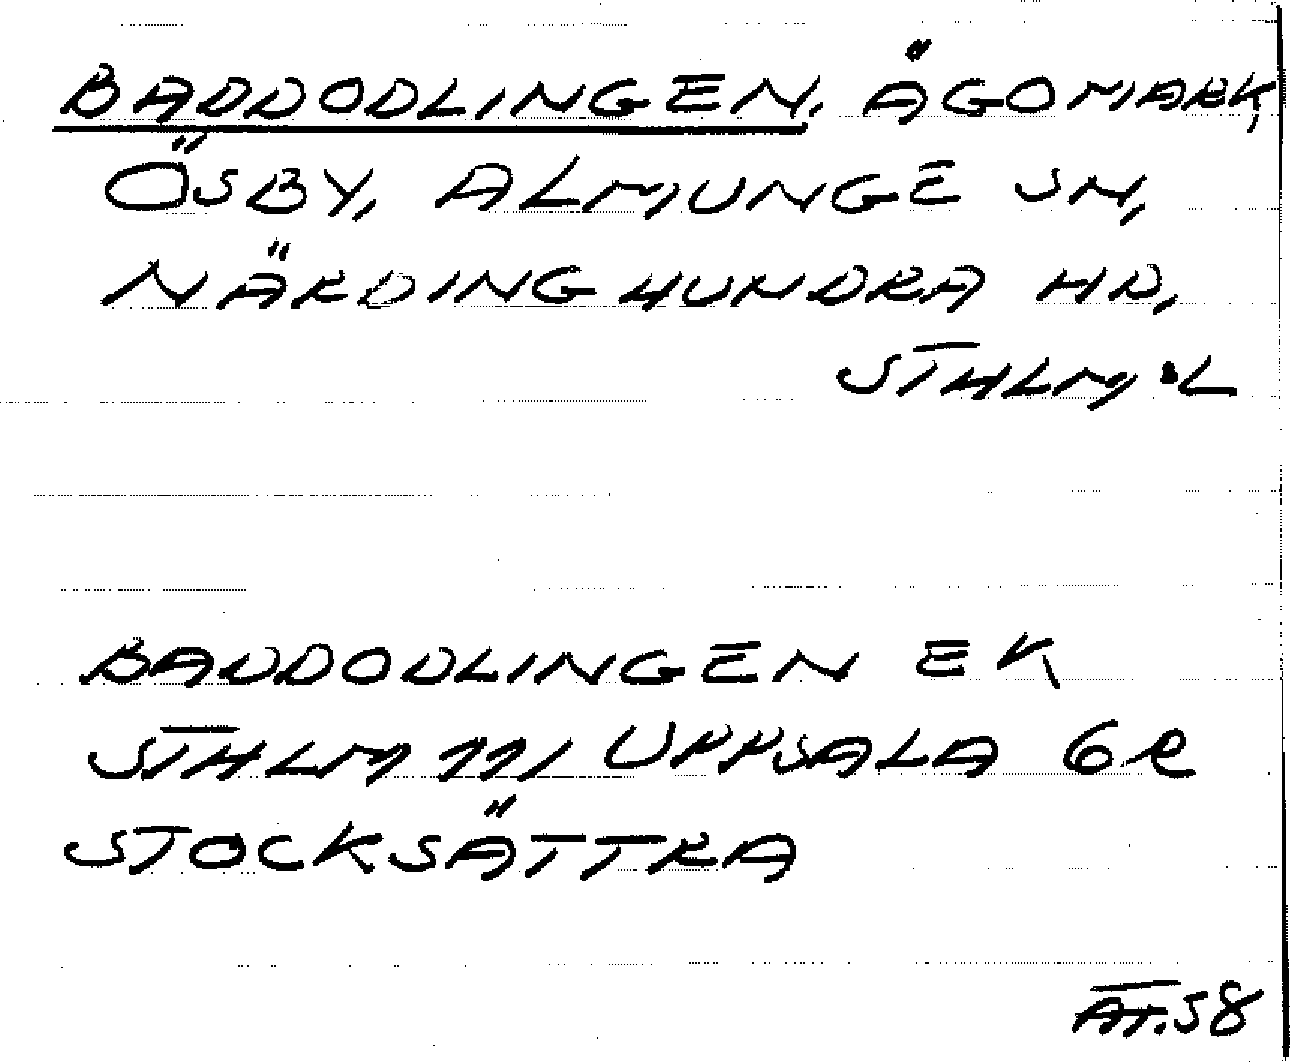 BADDODLINGEN, ÄGOMARK,
ÖSBY, ALMUNGE SN,
NÄRDINGHUNDRA HD,
STHLM:L
BADDODLINGEN EK
STHLM 111 UPPSALA 6R
STOCKSÄTTRA
AT.58